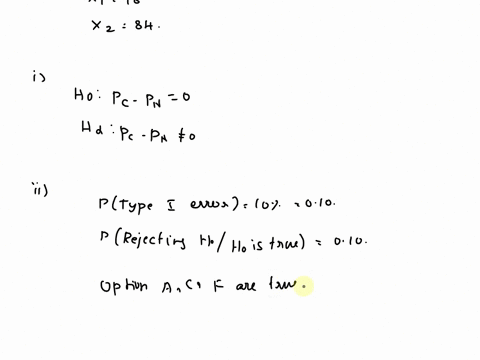 X₂ = 84.
i)
H0: PC - PN = 0
Hd: PC - PN ≠ 0
ii)
P(Type I error) = 10% = 0.10.
P(Rejecting H0/H0 is true) = 0.10.
Option A, C, F are true.